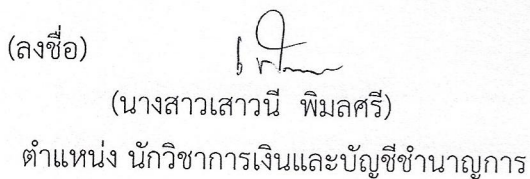 (ลงชื่อ)
(นางสาวเสาวนี พิมลศรี)
ตำแหน่ง นักวิชาการเงินและบัญชีชำนาญการ